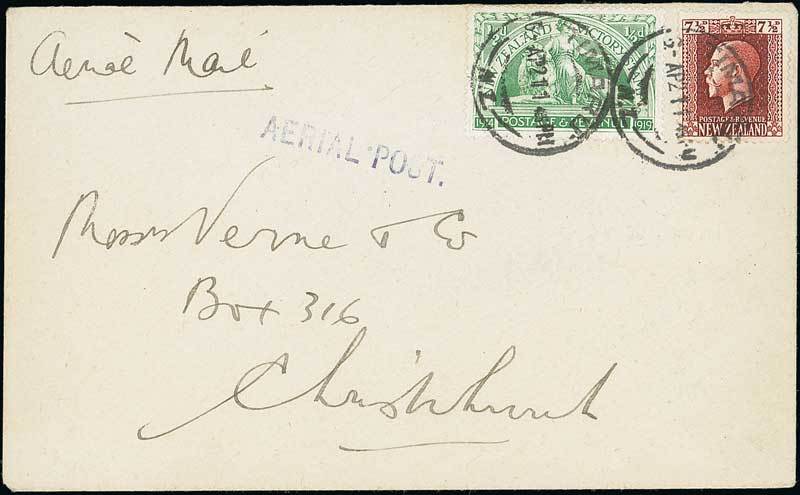 Aerial Mail
AERIAL-POST.
Messrs Verne & Co
Box 316
Christchurch
½d ½d
ZEALAND VICTORY
1914 POSTAGE & REVENUE 1919
7½d 7½d
POSTAGE & REVENUE
NEW ZEALAND
AP 21
AP 21